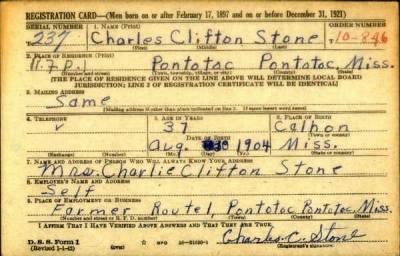 REGISTRATION CARD—(Men born on or after February 17, 1897 and on or before December 31, 1921)
SERIAL NUMBER 1. NAME (Print) ORDER NUMBER
237 Charles Clifton Stone 10-846
(First) (Middle) (Last)
2. PLACE OF RESIDENCE (Print)
Pontotoc Pontotoc, Miss.
(Number and street) (Town, township, village, or city) (County) (State)
(THE PLACE OF RESIDENCE GIVEN ON THE LINE ABOVE WILL DETERMINE LOCAL BOARD
JURISDICTION; LINE 2 OF REGISTRATION CERTIFICATE WILL BE IDENTICAL)
3. MAILING ADDRESS
Same
(Mailing address if other than place indicated on line 2. If same insert word same)
4. TELEPHONE 5. AGE IN YEARS 6. PLACE OF BIRTH
37 Calhon
DATE OF BIRTH (Town or county)
Aug. 1904 Miss.
(Exchange) (Number) (Mo.) (Day) (Yr.) (State or country)
7. NAME AND ADDRESS OF PERSON WHO WILL ALWAYS KNOW YOUR ADDRESS
Mrs. Charlie Clifton Stone
8. EMPLOYER'S NAME AND ADDRESS
Self
9. PLACE OF EMPLOYMENT OR BUSINESS
Farmer Route 1, Pontotoc Pontotoc, Miss.
(Number and street or R. F. D. number) (Town) (County) (State)
I AFFIRM THAT I HAVE VERIFIED ABOVE ANSWERS AND THAT THEY ARE TRUE.
D. S. S. Form 1 Charles C. Stone
(Revised 1-1-42) (Registrant's signature)